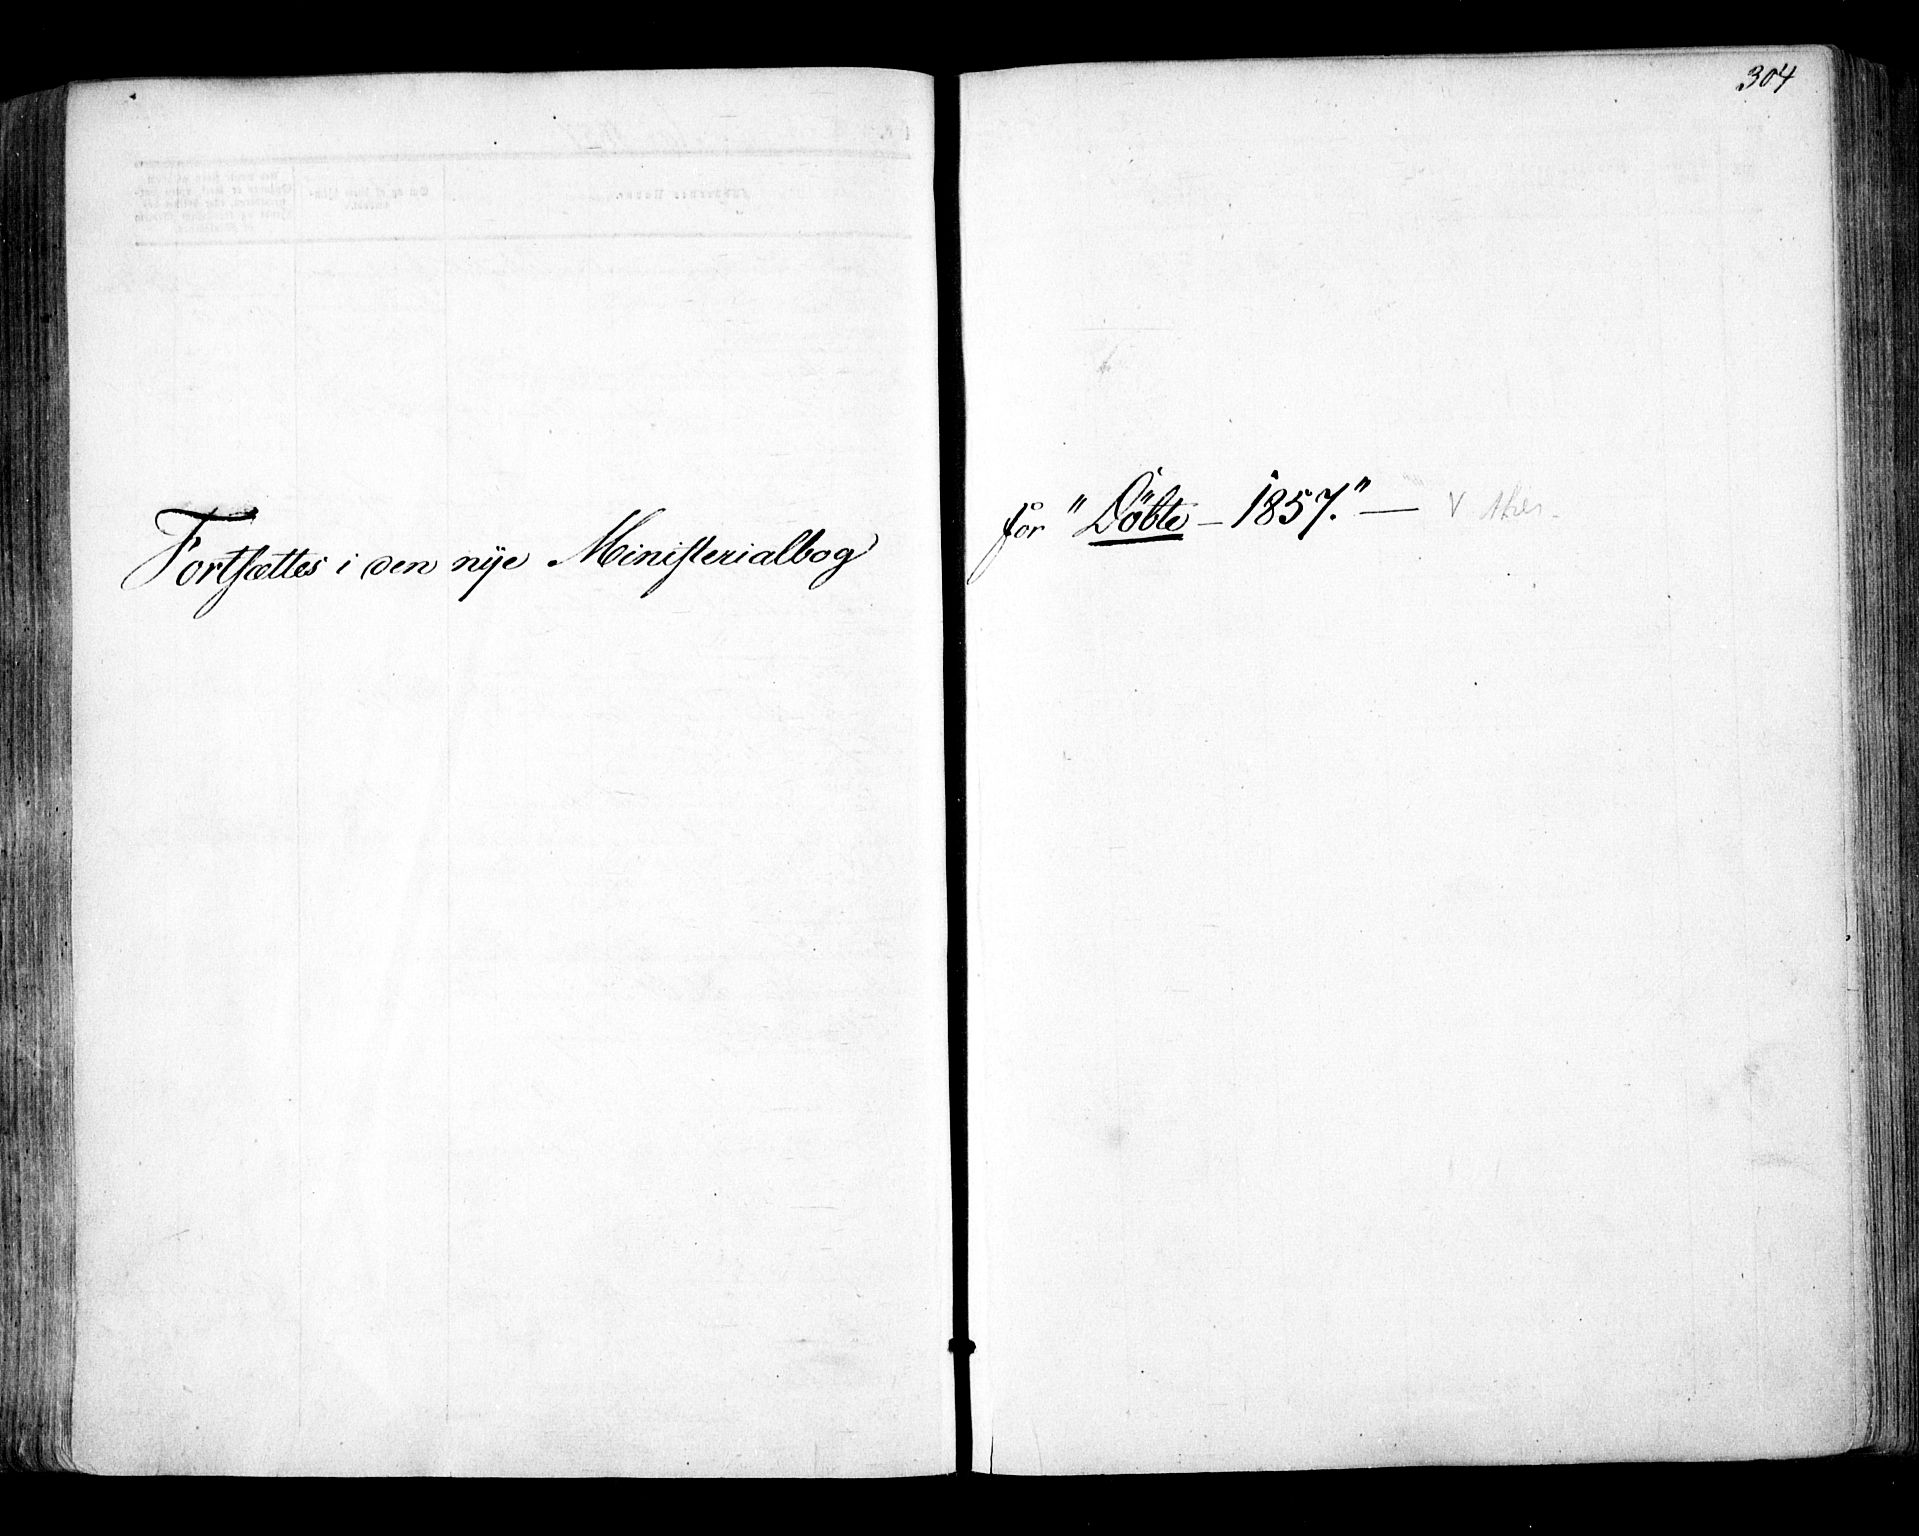 304
Fortsættes i den nye Ministerialbog
for "Döbte – 1857." —